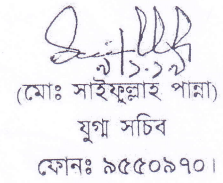 ৯।১.১৯
(মোঃ সাইফুল্লাহ পান্না)
যুগ্ম সচিব
ফোনঃ ৯৫৫০৯৭০।